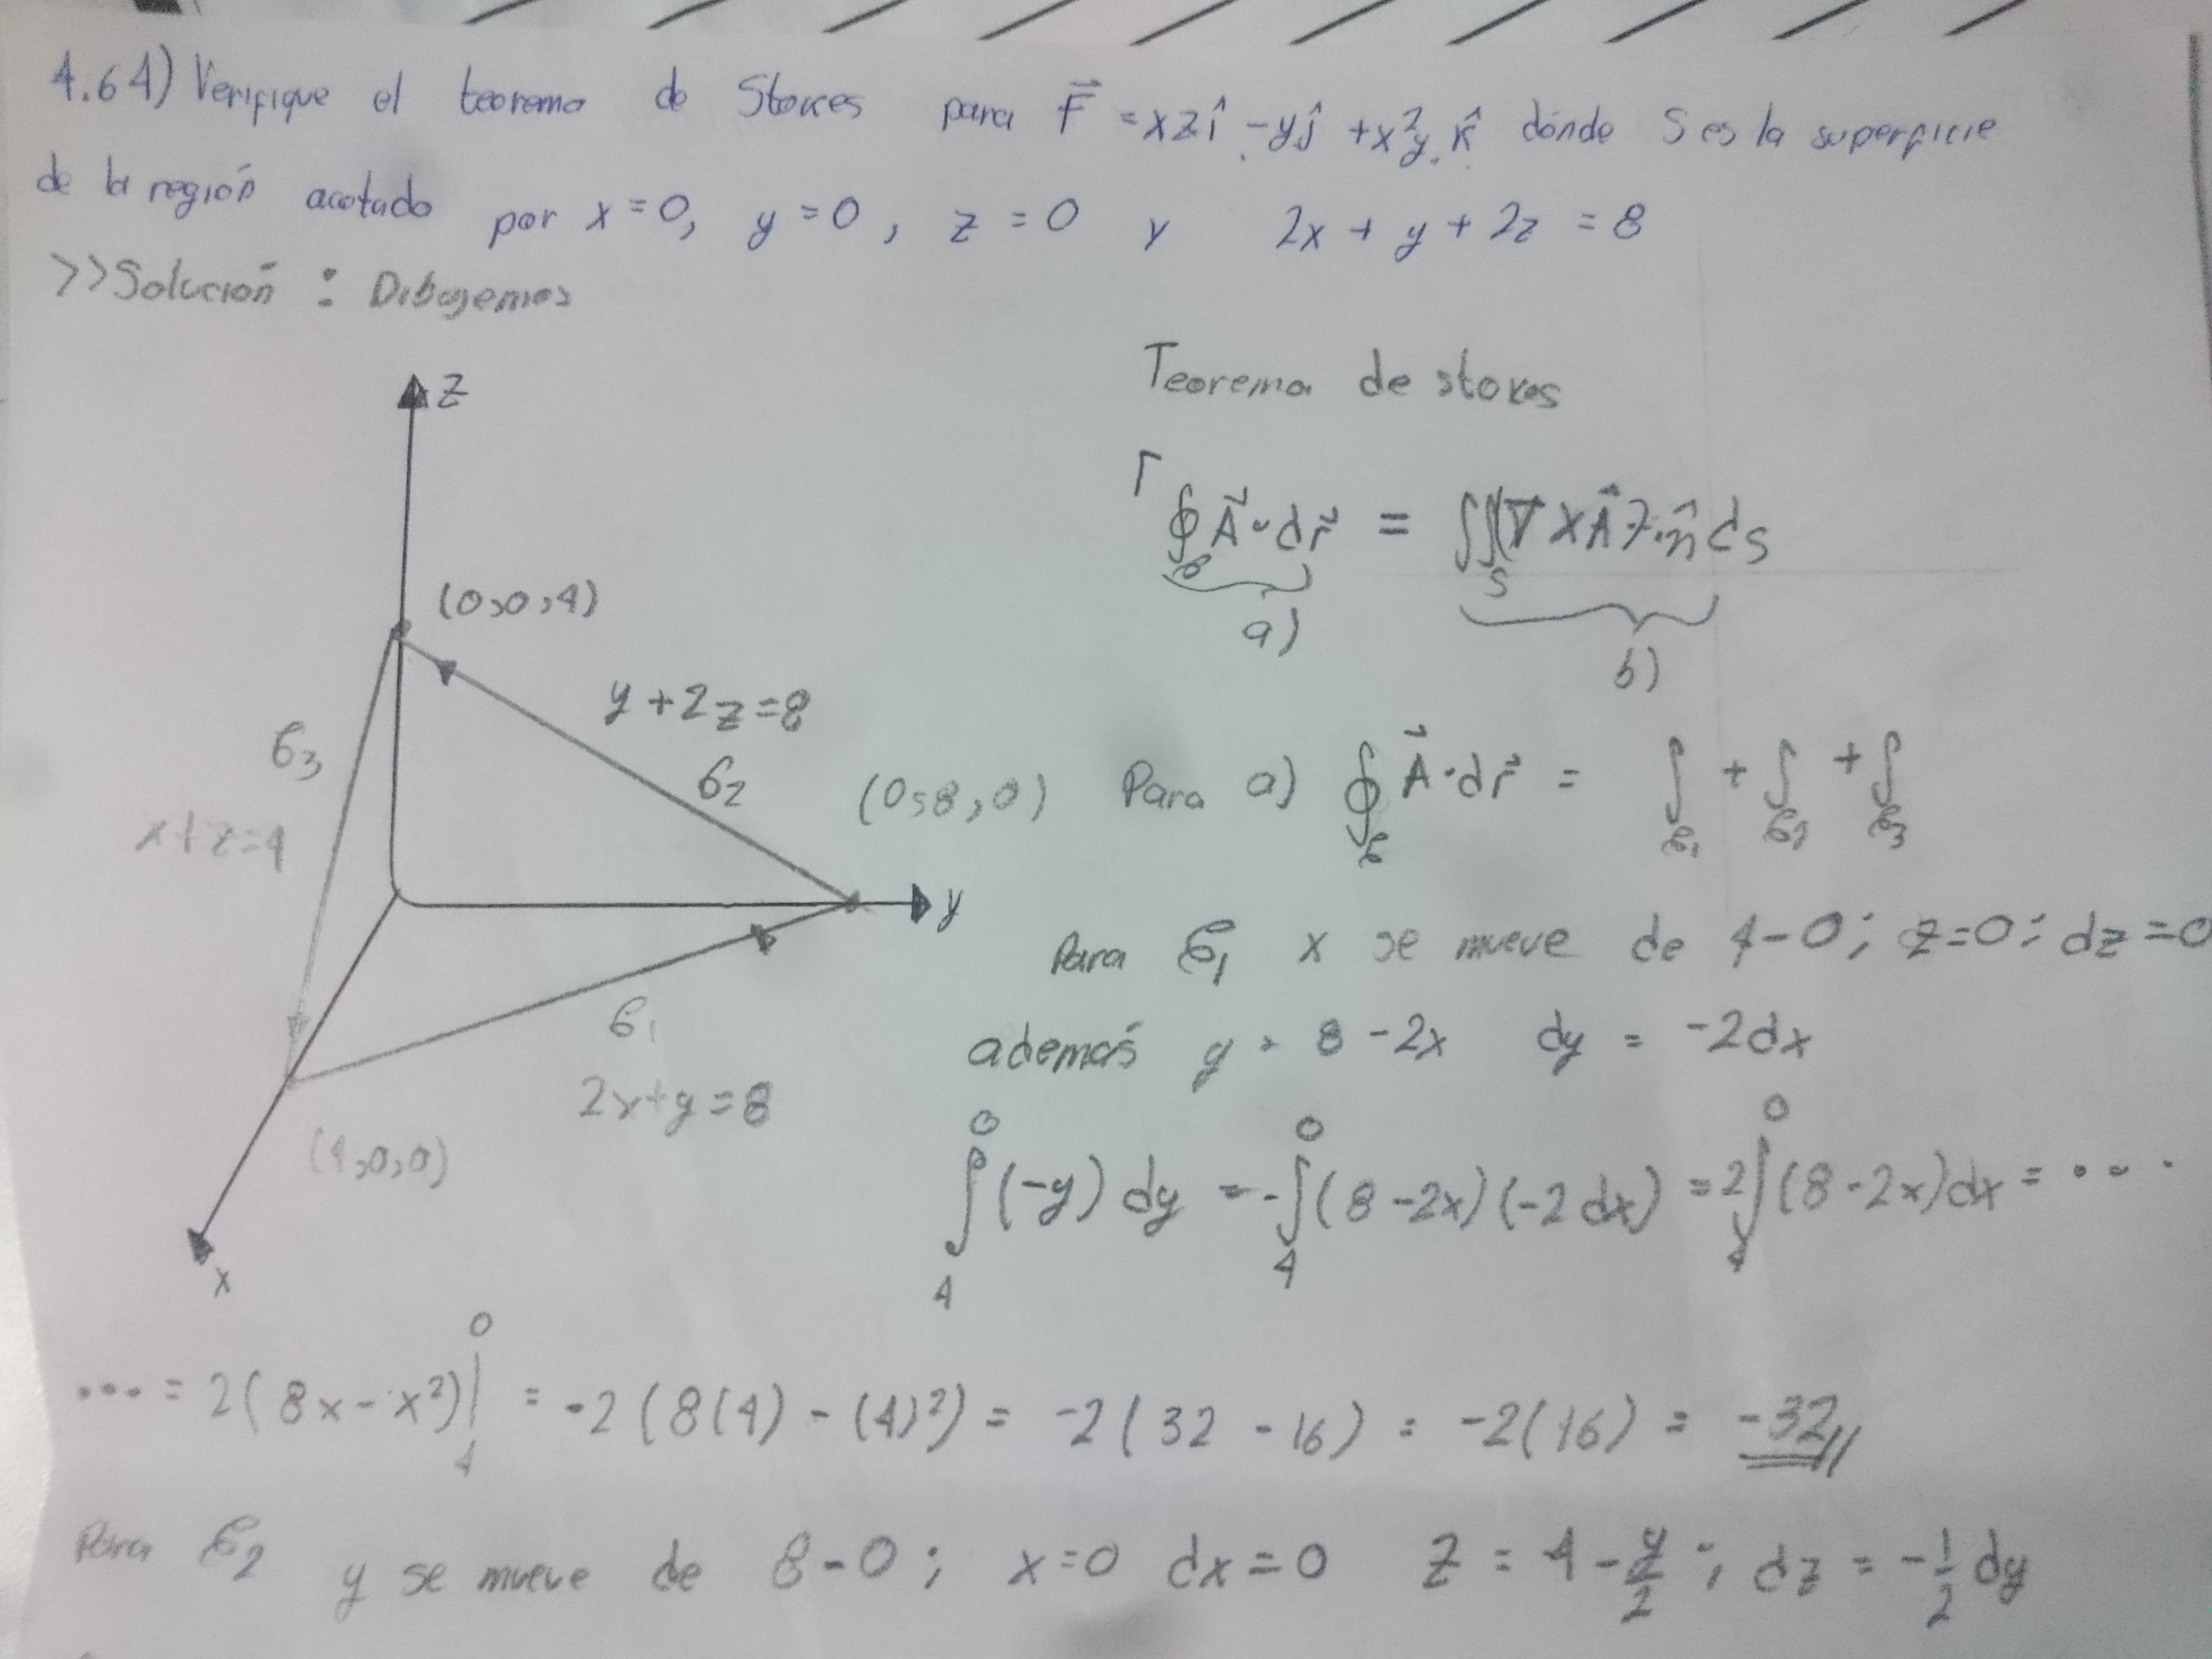 4.64) Verifique el teorema de Stokes para F⃗ = xz î - y ĵ + x²y k̂ dónde S es la superficie
de la región acotado por x = 0, y = 0, z = 0 y 2x + y + 2z = 8
>>Solución : Dibujemos
Teorema de stokes
∮_C A⃗ · dr⃗ = ∬_S (∇ x A⃗) · n̂ ds
a)
b)
z
(0,0,4)
y + 2z = 8
C3
C2
x + z = 4
(0,8,0)
y
C1
2x + y = 8
(4,0,0)
x
Para a) ∮_C A⃗ · dr⃗ = ∫_C1 + ∫_C2 + ∫_C3
Para C1 x se mueve de 4 - 0 ; z = 0 ; dz = 0
además y = 8 - 2x dy = -2dx
∫_4^0 (-y) dy = -∫_4^0 (8 - 2x)(-2dx) = 2∫_4^0 (8 - 2x)dx = ...
... = 2(8x - x²)|_4^0 = -2(8(4) - (4)²) = -2(32 - 16) = -2(16) = -32//
Para C2 y se mueve de 8 - 0 ; x = 0 dx = 0 z = 4 - y/2 ; dz = -1/2 dy